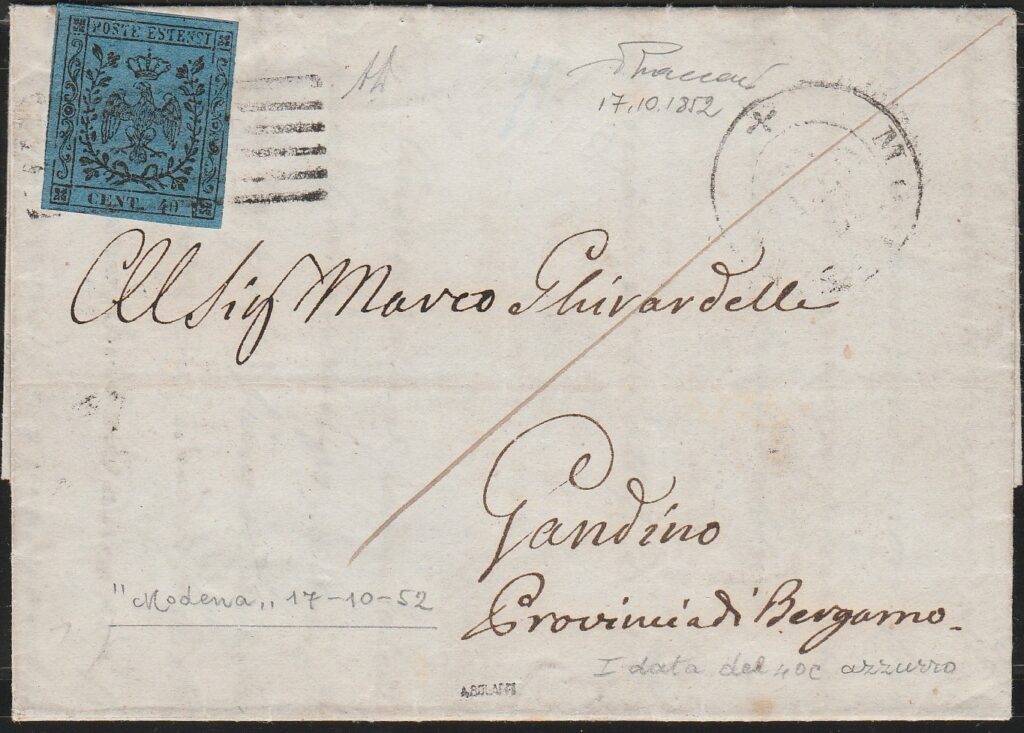 POSTE ESTENSI
CENT. 40
17.10.1852
Al Sig Marco Ghirardelli
Gandino
Provincia di Bergamo
"Modena„ 17-10-52
I data del 40c azzurro
A.BOLAFFI